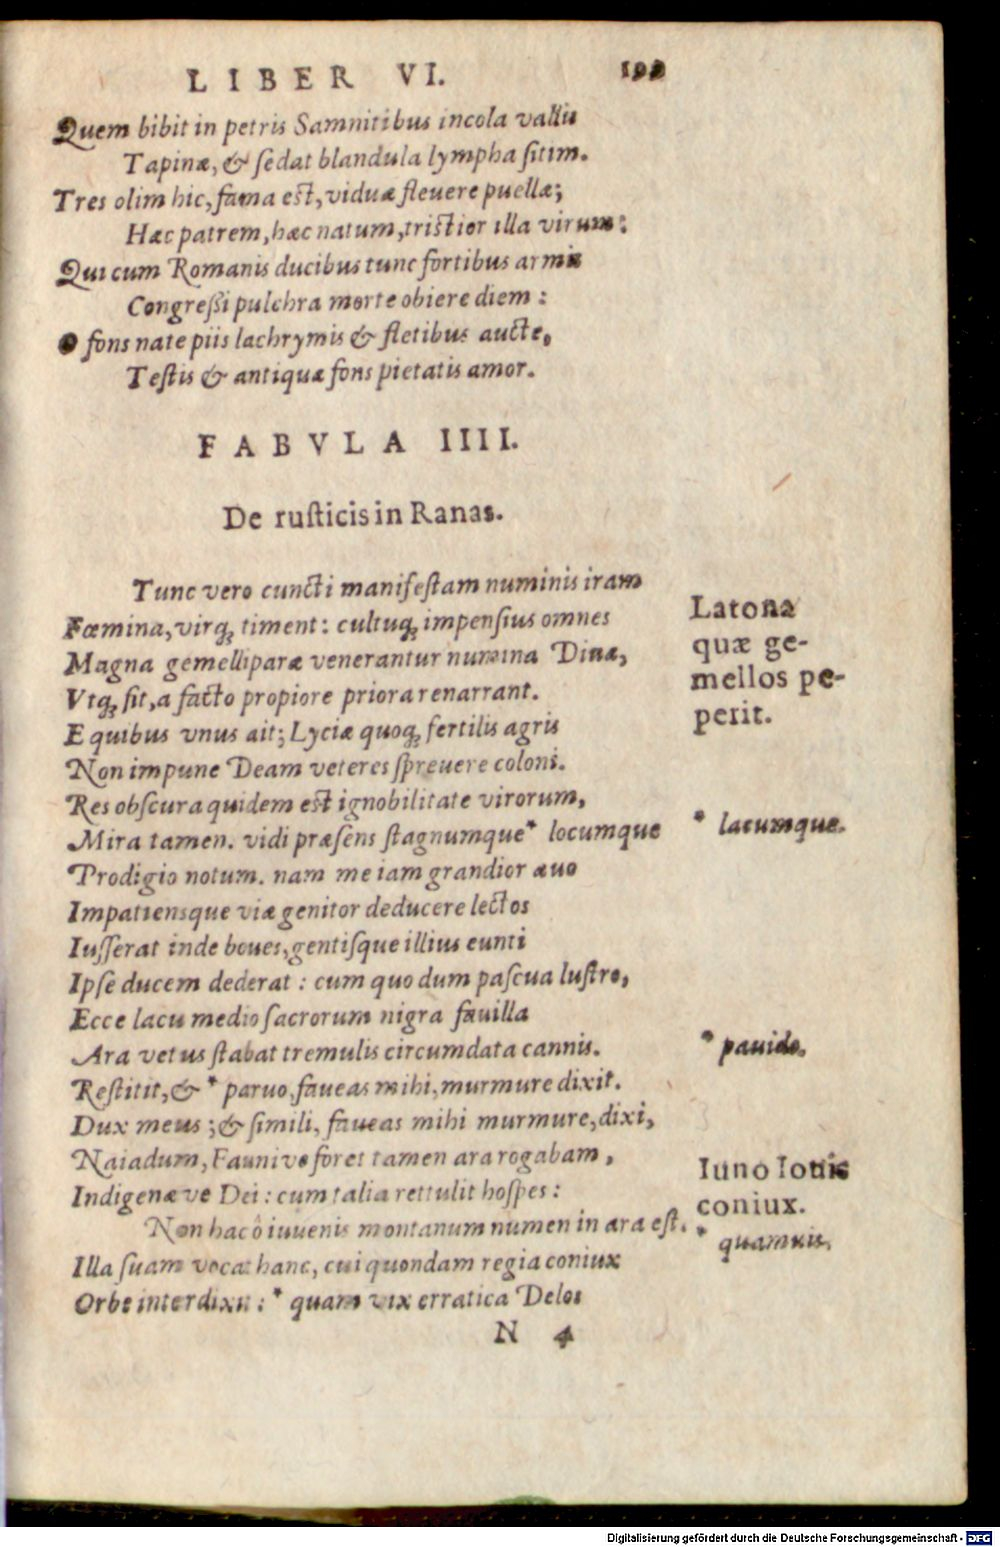 LIBER VI.
Quem bibit in petris Samnitibus incola vallis
Tapinæ, & ſedat blandula lympha ſitim.
Tres olim hic, fama eſt, viduæ fleuere puellæ;
Hæc patrem, hæc natum, triſtior illa virum:
Qui cum Romanis ducibus tunc fortibus armis
Congreßi pulchra morte obiere diem:
O fons nate piis lachrymis & fletibus aucte,
Teſtis & antiquæ fons pietatis amor.
FABVLA IIII.
De ruſticis in Ranas.
Tunc vero cuncti manifeſtam numinis iram
Fœmina, virq́; timent: cultuq́; impenſius omnes
Magna gemelliparæ venerantur numina Diuæ,
Vtq́; fit, a facto propiore priora renarrant.
E quibus vnus ait; Lyciæ quoq́; fertilis agris
Non impune Deam veteres ſpreuere coloni.
Res obſcura quidem eſt ignobilitate virorum,
Mira tamen. vidi præſens ſtagnumque * locumque
Prodigio notum. nam me iam grandior æuo
Impatiensque viæ genitor deducere lectos
Iuſſerat inde boues, gentiſque illius eunti
Ipſe ducem dederat: cum quo dum paſcua luſtro,
Ecce lacu medio ſacrorum nigra fauilla
Ara vetus ſtabat tremulis circumdata cannis.
Reſtitit, & * paruo, faueas mihi, murmure dixit.
Dux meus; & ſimili, faueas mihi murmure, dixi,
Naiadum, Fauni ve foret tamen ara rogabam,
Indigenæ ve Dei: cum talia rettulit hoſpes:
Non hac ô iuuenis montanum numen in ara eſt.
Illa ſuam vocat hanc, cui quondam regia coniux
Orbe interdixit: * quam vix erratica Delos
N 4
Latona
quæ ge-
mellos pe-
perit.
* lacumque.
* pauido.
Iuno Iouis
coniux.
* quamuis.
Digitalisierung gefördert durch die Deutsche Forschungsgemeinschaft - DFG